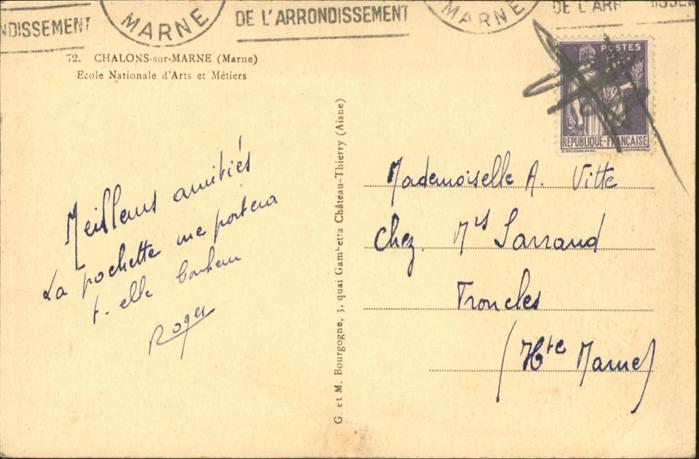 NDISSEMENT
MARNE
DE L'ARRONDISSEMENT
MARNE
DE L'ARR
72. CHALONS-sur-MARNE (Marne)
Ecole Nationale d'Arts et Métiers
POSTES
REPUBLIQUE-FRANÇAISE
Meilleurs amitiés
La pochette me portera
t-elle bonheur
Roger
G. et M. Bourgogne, 3, quai Gambetta Château-Thierry (Aisne)
Mademoiselle A. Vitte
Chez Mrs Sarraud
Froncles
(Hte Marne)